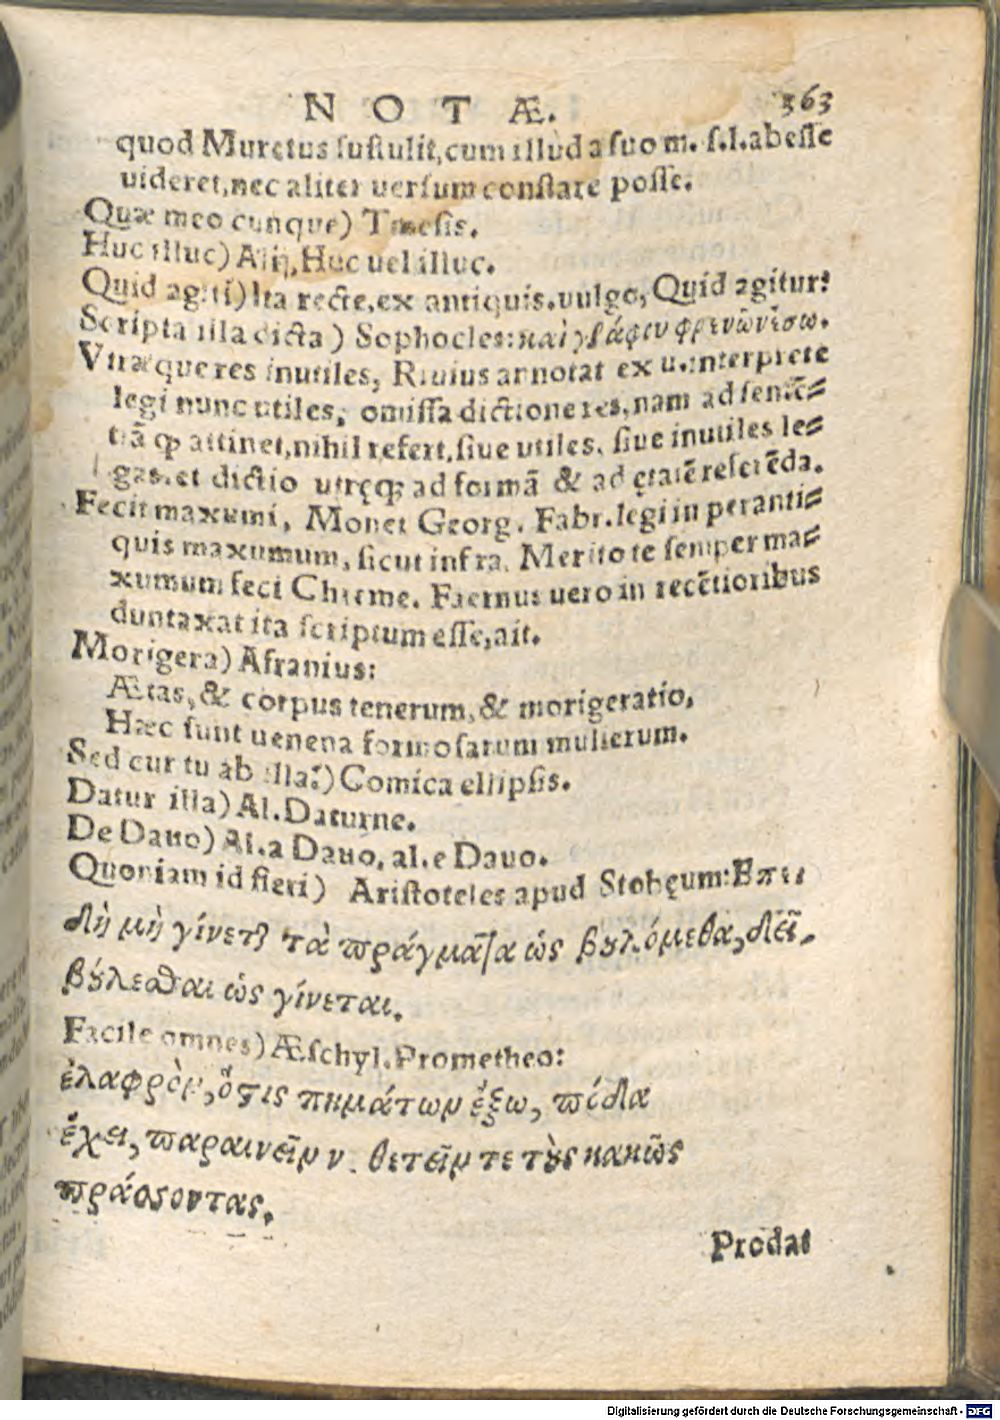 NOTÆ. 363
quod Muretus sustulit, cum illud a suo m. s. l. abesse
uideret, nec aliter uersum constare posse.
Quæ meo cunque) Tmesis.
Huc illuc) Alij, Huc uel illuc.
Quid agiti) Ita recte, ex antiquis. uulgo, Quid agitur?
Scripta illa dicta) Sophocles: καὶ γράφου φρενῶν ἔσω.
Vtræque res inutiles, Riuius annotat ex u. interprete
legi nunc utiles, omissa dictione res, nam ad senten=
tiã qȝ attinet, nihil refert, siue utiles, siue inutiles le=
gas. et dictio utręqȝ ad formã & ad ętatẽ referẽda.
Fecit maxumi, Monet Georg. Fabr. legi in peranti=
quis maxumum, sicut infra. Merito te semper ma=
xumum feci Chreme. Faernus uero in recẽtioribus
duntaxat ita scriptum esse, ait.
Morigera) Afranius:
Ætas, & corpus tenerum, & morigeratio,
Hæc sunt uenena formosarum mulierum.
Sed cur tu ab illa?) Comica ellipsis.
Datur illa) Al. Daturne.
De Dauo) Al. a Dauo, al. e Dauo.
Quoniam id fieri) Aristoteles apud Stobęum: Επει
δὴ μὴ γίνετȣ τὰ πράγματα ὡς βȣλόμεθα, δεῖ
βȣ́λεσθαι ὡς γίνεται.
Facile omnes) Æschyl. Prometheo:
ἐλαφρὸν, ὅστις πημάτων ἔξω, πόδα
ἔχει, παραινεῖν ν. θετεῖν τε τȣ̀ς κακῶς
πράσσοντας.
Prodat
Digitalisierung gefördert durch die Deutsche Forschungsgemeinschaft - DFG